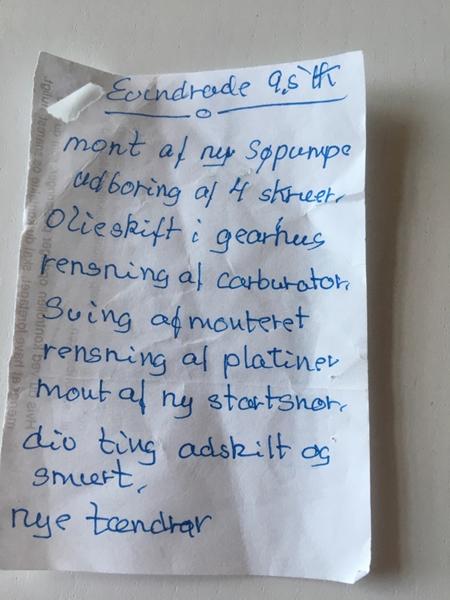 Evindrade 9,5 HK
mont af ny Søpumpe
udboring af 4 skruer.
Olieskift i gearhus
rensning af carburator.
Sving afmonteret
rensning af platiner
mont af ny startsnor.
div ting adskilt og
smurt.
nye tændrør